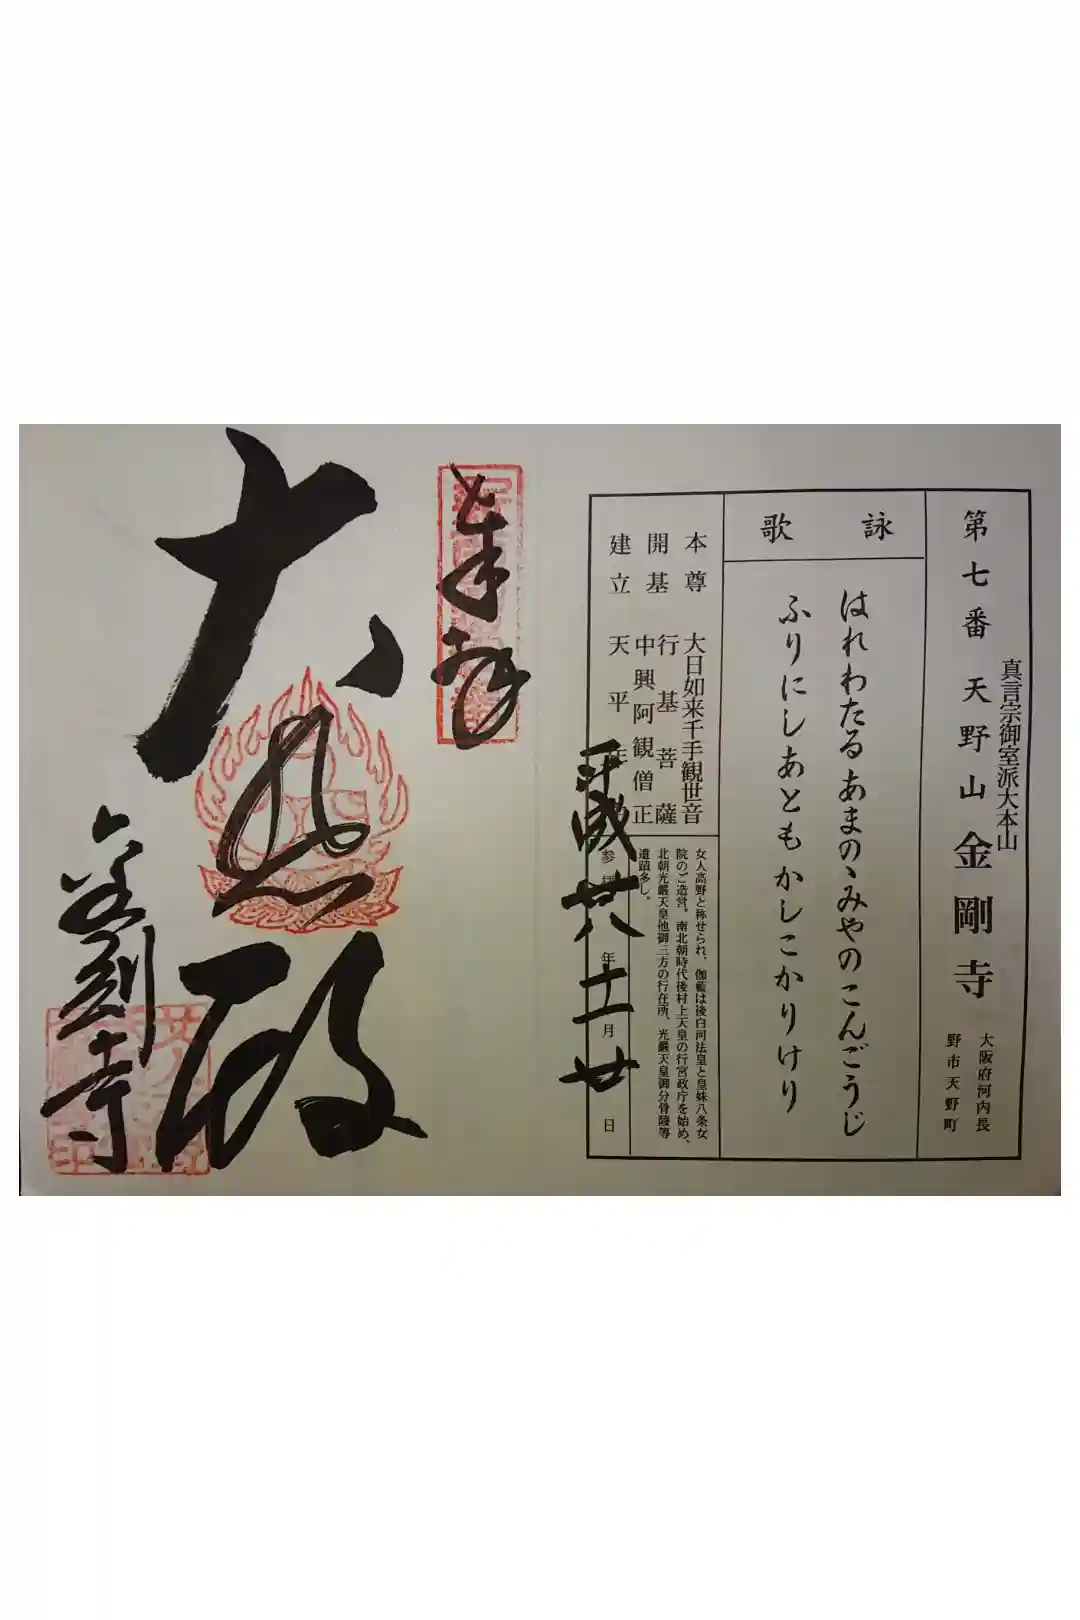 第七番 天野山 金剛寺
真言宗御室派大本山
大阪府河内長
野市天野町
詠歌
はれわたるあまのゝみやのこんごうじ
ふりにしあともかしこかりけり
本尊 大日如来千手観世音
開基 行基菩薩
中興阿観僧正
建立 天平年
女人高野と称せられ、伽藍は後白河法皇と皇妹八条女
院のご造営。南北朝時代後村上天皇の行宮政庁を始め、
北朝光厳天皇他御三方の行在所、光厳天皇御分骨陵等
遺蹟多し。
参拝 年 月 日
平成廿八 十一 廿
奉拝
大悲殿
金剛寺